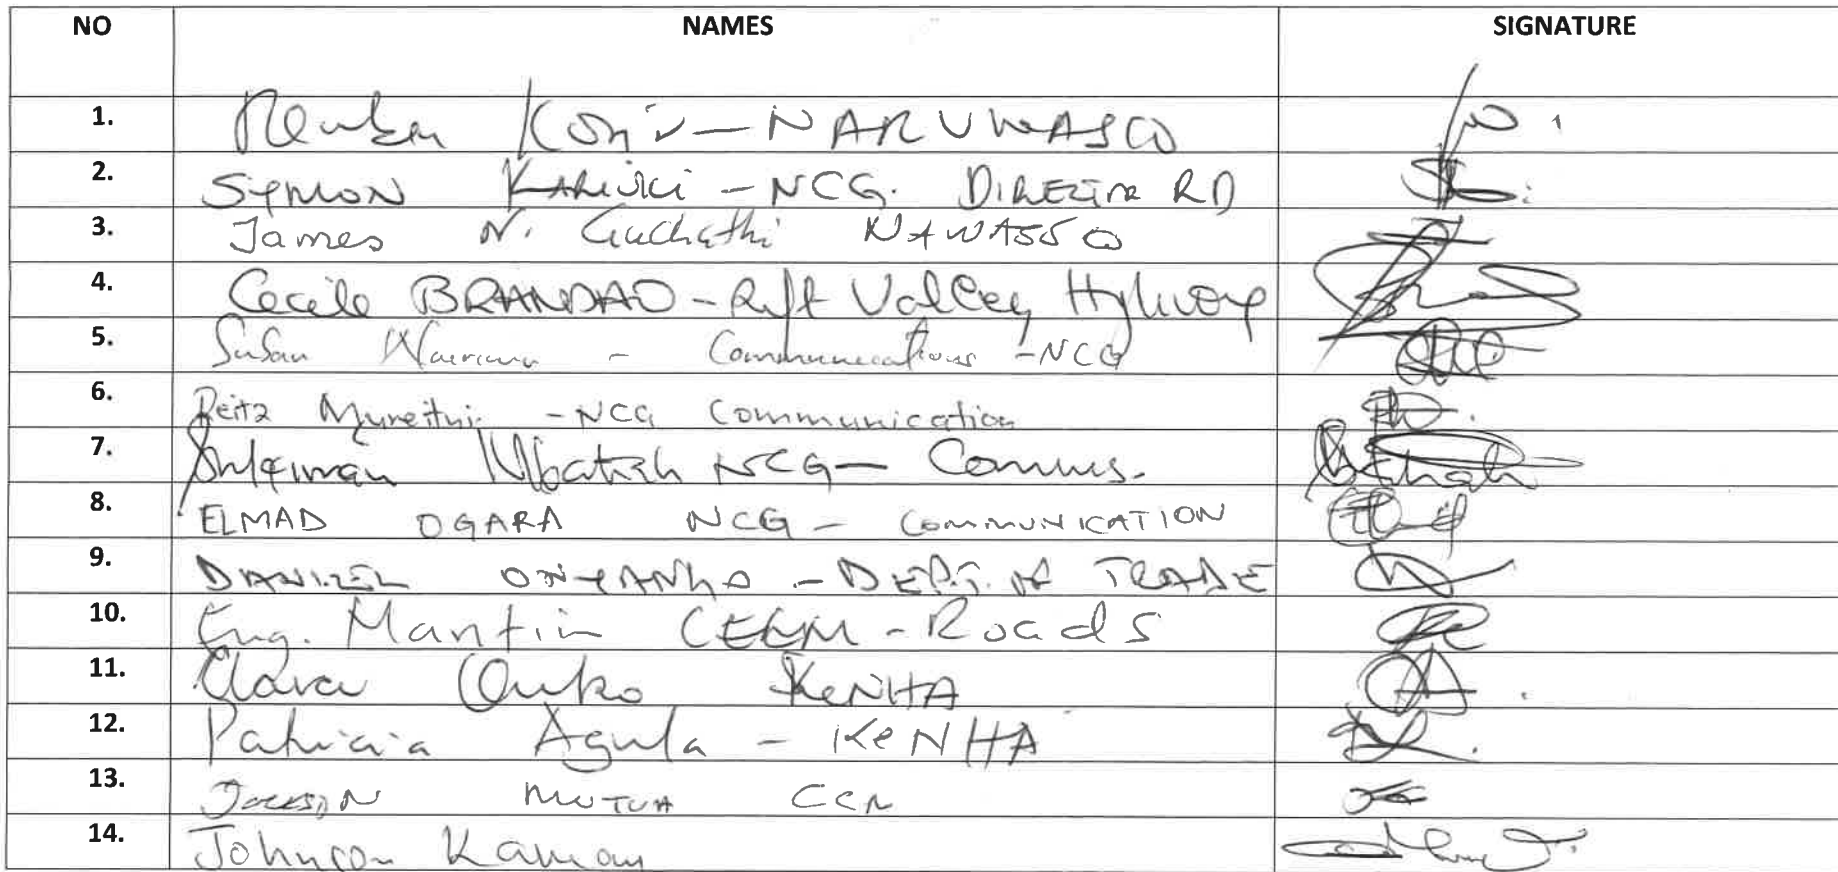 NO NAMES SIGNATURE
1. Reuben Korir - NARUWASCO
2. Symon Kariuki - NCG. DIRECTOR RD
3. James N. Gachathi NAWASSCO
4. Cecile BRANDAO - Rift Valley Highway
5. Susan Wairimu - Communications - NCG
6. Mureithi - NCG Communication
7. Suleiman Mbatiah NCG - Comms.
8. ELMAD OGARA NCG - COMMUNICATION
9. DANIEL ONYANGO - DEPT. OF TRADE
10. Eng. Martin - Roads
11. Clara Ouko KeNHA
12. Patricia Agula - KeNHA
13. JACKSON MUTUA
14. Johnson Kamau